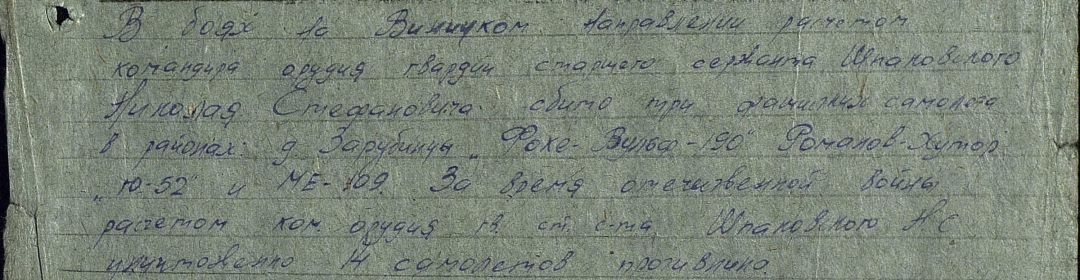 В боях на Виницком направлении расчетом
командира орудия гвардии старшего сержанта Шпаковского
Николая Стефановича сбито три фашистких самолета
в районах: д Зарубинцы „Фоке-Вульф-190" Романов-Хутор
„Ю-52" и МЕ-109 За время отечественной войны
расчетом ком орудия гв. ст. с-та Шпаковского Н С
уничтожено 14 самолетов противника